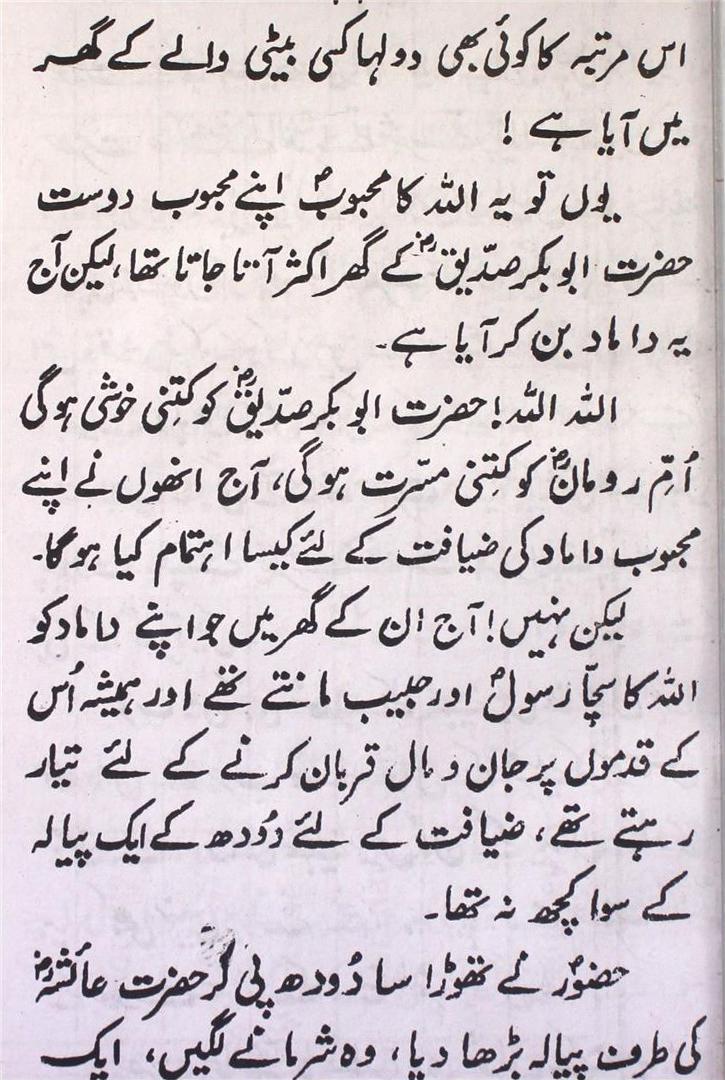 اس مرتبہ کا کوئی بھی دولہا کسی بیٹی والے کے گھر
میں آیا ہے !
یوں تو یہ اللہ کا محبوبؐ اپنے محبوب دوست
حضرت ابو بکر صدّیقؓ کے گھر اکثر آتا جاتا تھا، لیکن آج
یہ داماد بن کر آیا ہے۔
اللہ اللہ! حضرت ابو بکر صدّیقؓ کو کتِنی خوشی ہو گی
اُمِّ رومانؓ کو کتِنی مسّرت ہو گی، آج انھوں نے اپنے
محبوب داماد کی ضیافت کے لئے کیسا اہتمام کیا ہو گا۔
لیکن نہیں! آج ان کے گھر میں جو اپنے داماد کو
اللہ کا سچّا رسولؐ اور حبیب مانتے تھے اور ہمیشہ اُس
کے قدموں پر جان و مال قربان کرنے کے لئے تیار
رہتے تھے، ضیافت کے لئے دُودھ کے ایک پیالہ
کے سوا کچھ نہ تھا۔
حضورؐ نے تھوڑا سا دُودھ پی کر حضرت عائشہؓ
کی طرف پیالہ بڑھا دیا، وہ شرمانے لگیں، ایک